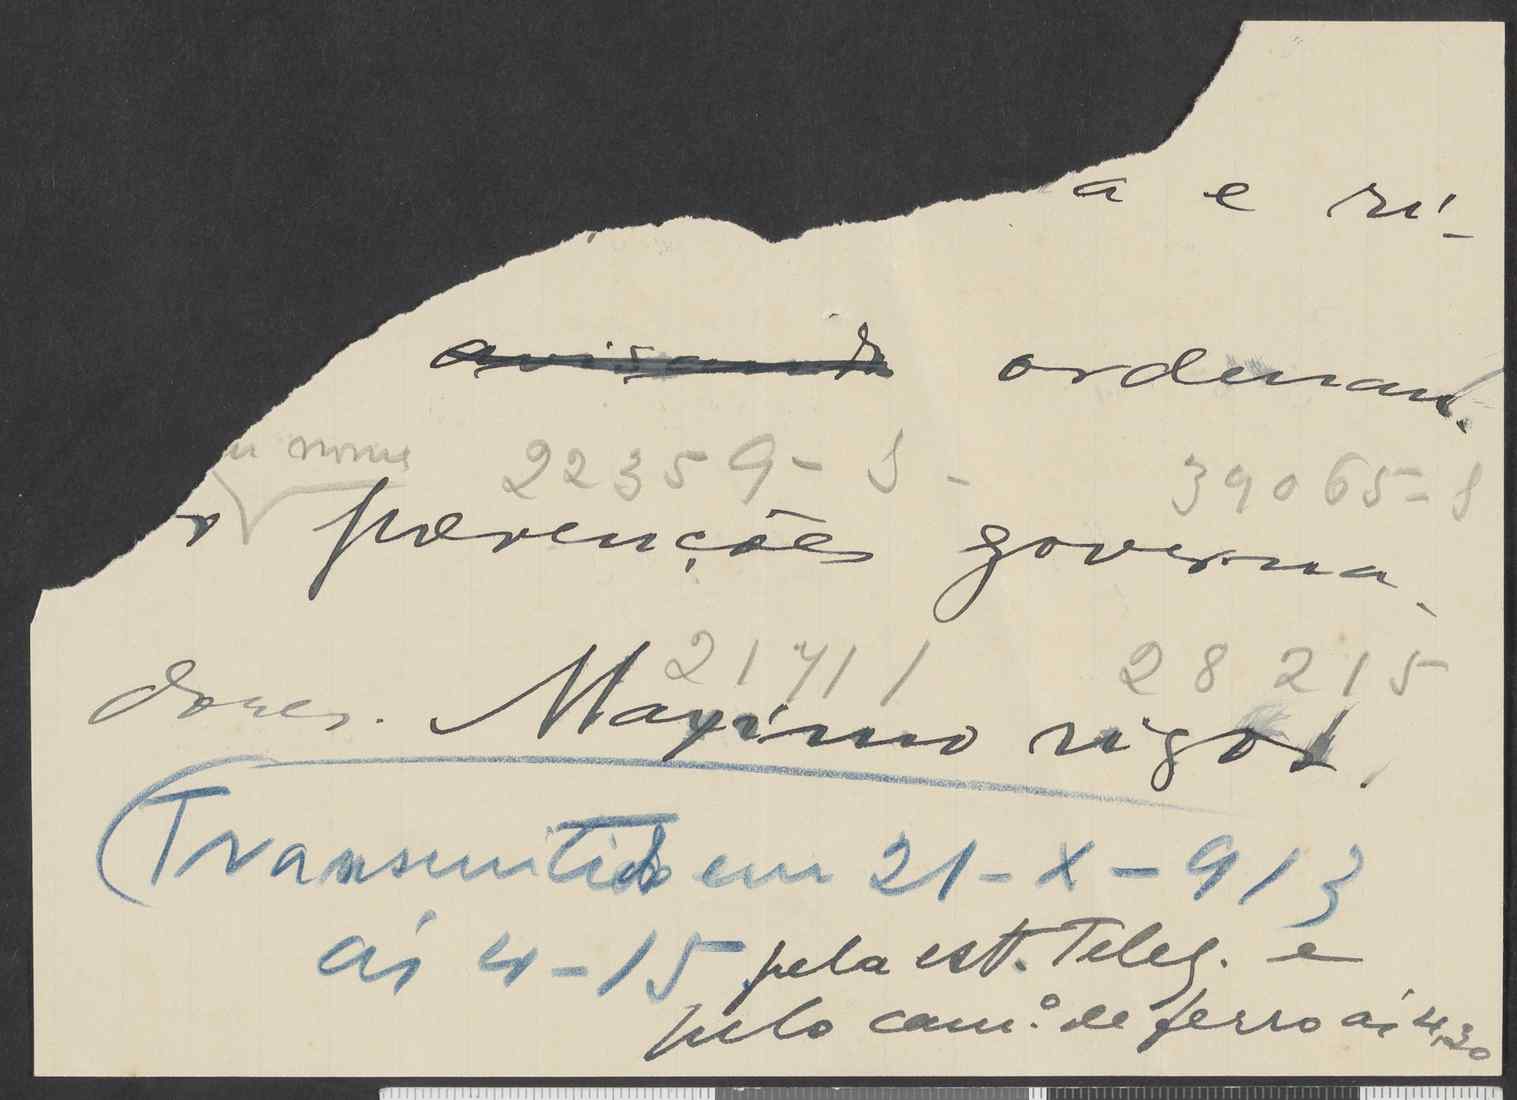 a e ri-
avisando ordenan.
nome 22359-S- 39065-S
o prevenções governa-
dores. Maximo rigor.
21711 28215
(Transmitido em 21-X-913
ás 4-15 pela est. Teleg. e
pelo cam.º de ferro ás 4,30